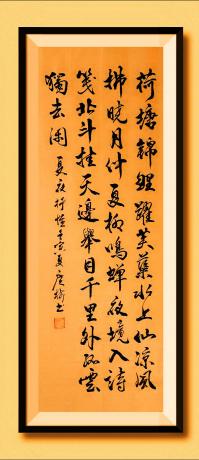 荷塘錦鯉躍芙蕖水上仙涼風
拂曉月竹夏柳鳴蟬夜境入詩
箋北斗挂天邊舉目千里外孤雲
獨去閑
夏夜抒懷壬寅夏